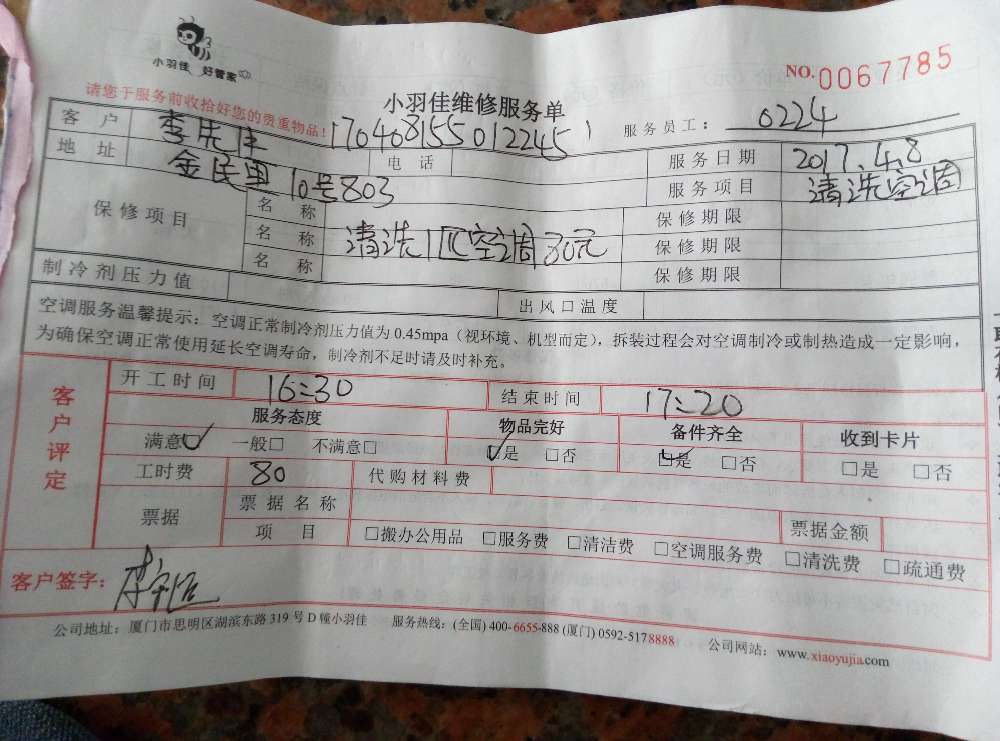 小羽佳 好管家
NO.0067785
请您于服务前收拾好您的贵重物品!
小羽佳维修服务单
服务员工： 0224
客户 李先生 170408155012245
地址 金民里10号803 电话
服务日期 2017.4.8
服务项目 清洗空调
保修项目 名称 保修期限
名称 清洗1匹空调80元 保修期限
名称 保修期限
制冷剂压力值 出风口温度
空调服务温馨提示：空调正常制冷剂压力值为 0.45mpa（视环境、机型而定），拆装过程会对空调制冷或制热造成一定影响，
为确保空调正常使用延长空调寿命，制冷剂不足时请及时补充。
客户评定
开工时间 16:30 结束时间 17:20
服务态度 物品完好 备件齐全 收到卡片
满意☑ 一般□ 不满意□ ☑是 □否 ☑是 □否 □是 □否
工时费 80 代购材料费
票据 票据名称 票据金额
项目 □搬办公用品 □服务费 □清洁费 □空调服务费 □清洗费 □疏通费
客户签字：
公司地址：厦门市思明区湖滨东路 319 号 D 幢小羽佳 服务热线：(全国) 400-6655-888 (厦门) 0592-5178888 公司网站：www.xiaoyujia.com